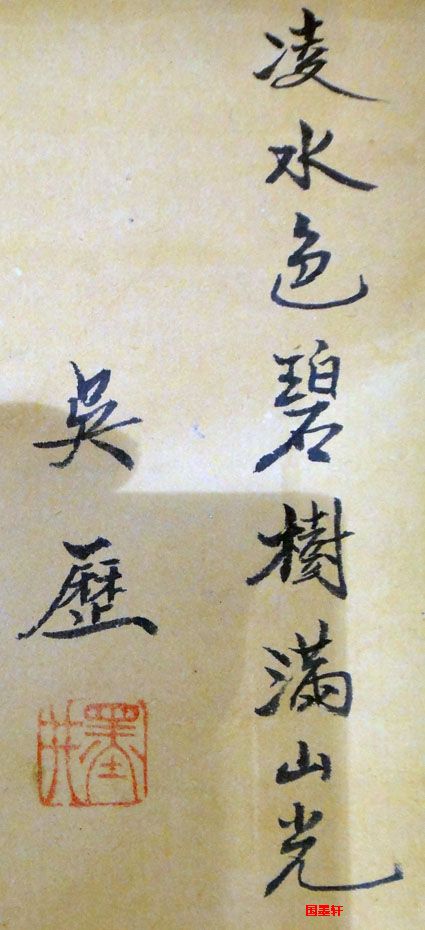 凌水色碧樹滿山光
吳歷
墨井
国墨轩